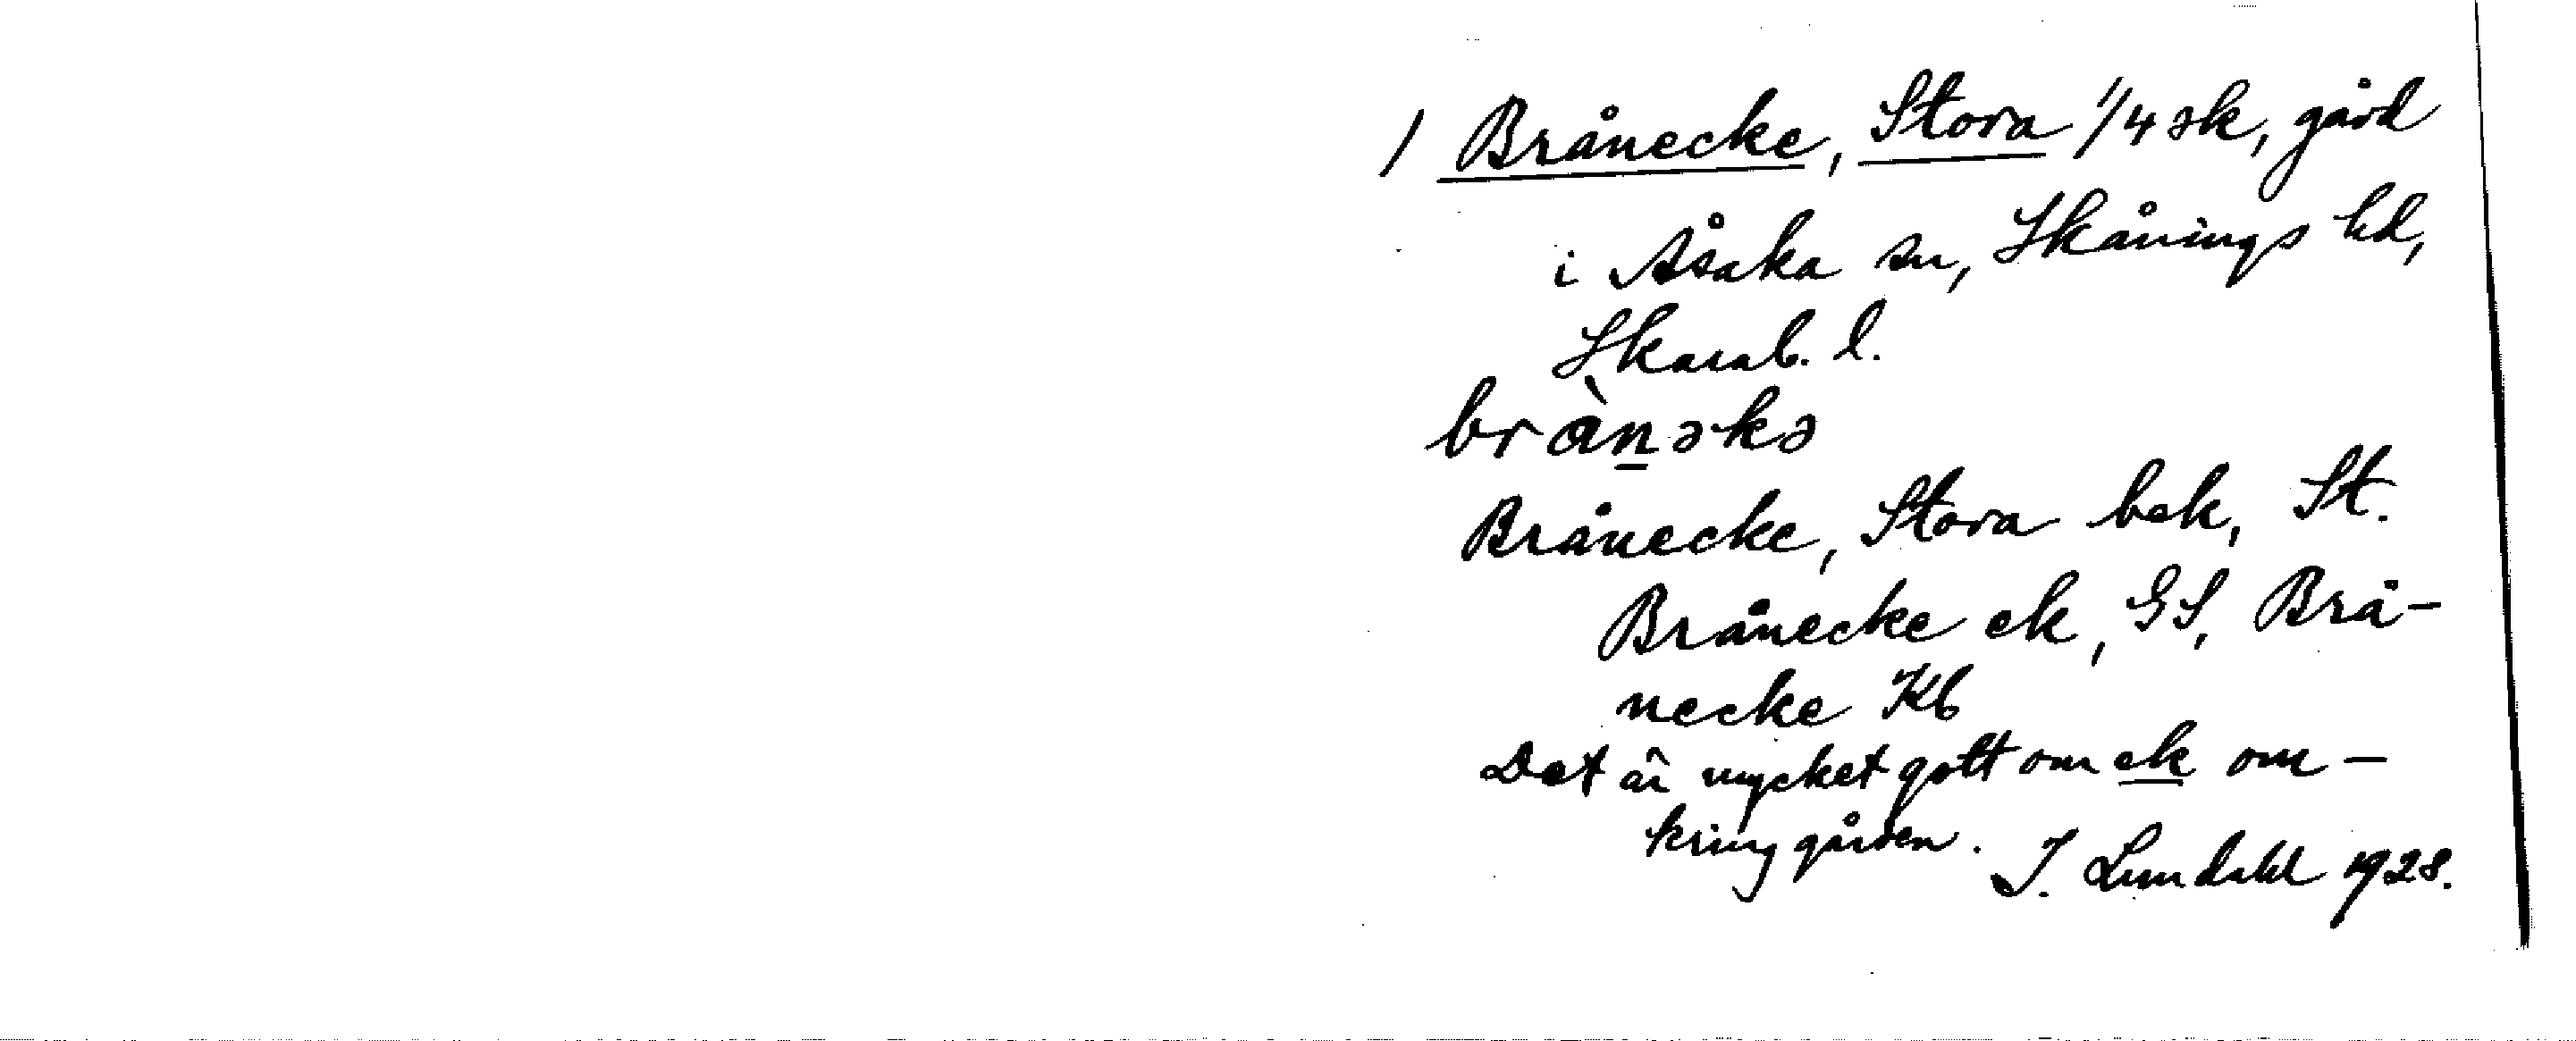 / Brånecke, Stora 1/4 sk, gård
i Åsaka sn, Skånings hd,
Skarab. l.
brànəkə
Brånecke, Stora bek, St.
Brånecke ek, GS, Brå-
necke Kb
Det är mycket gott om ek om-
kring gården. I. Lundahl 1928.